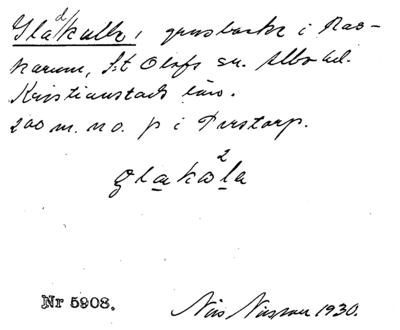 Gladkulle, grusbacke i Ras-
karum, St Olofs sn. Albo hd.
Kristianstads län.
200 m. no. p i Perstorp.
glakola 2
Nr 5908.
Nils Nilsson 1930.